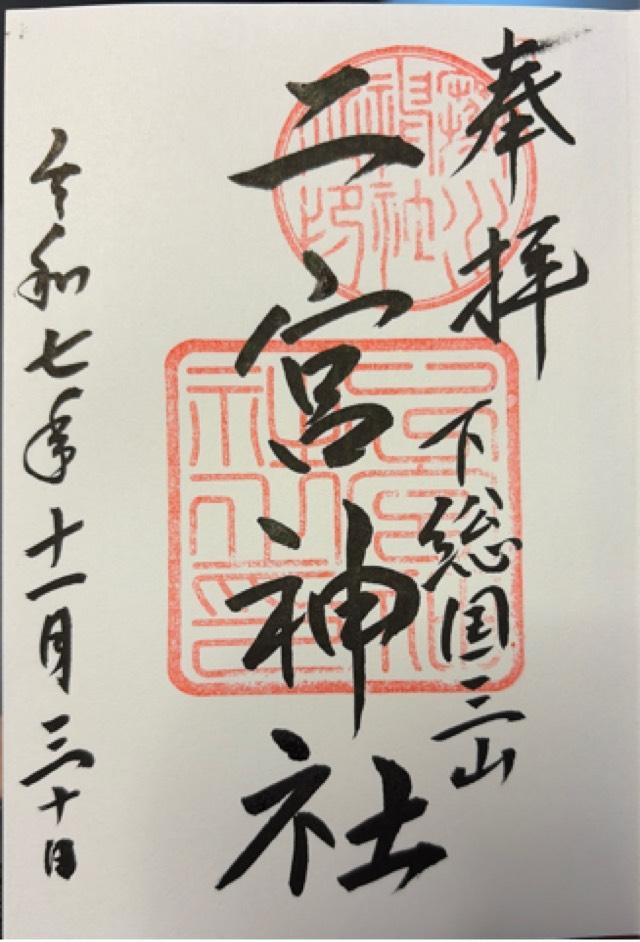 奉拝
下総国三山
二宮神社
令和七年十一月三十日